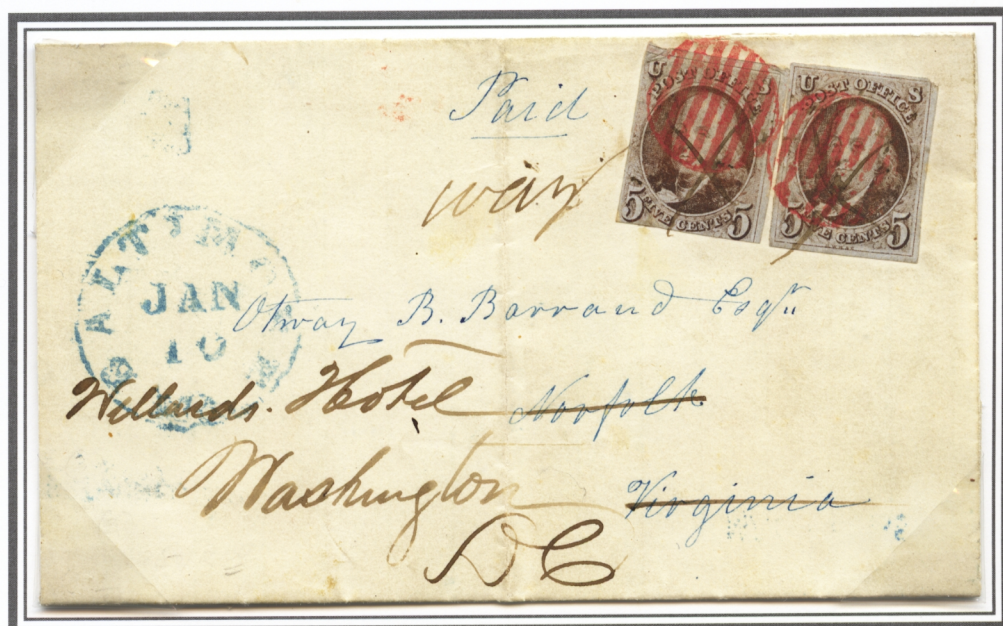 Paid
way
U S
POST OFFICE
5 FIVE CENTS 5
U S
POST OFFICE
5 FIVE CENTS 5
BALTIMORE
JAN
10
Otway B. Barraud Esqr
Willards. Hotel Norfolk
Washington Virginia
DC